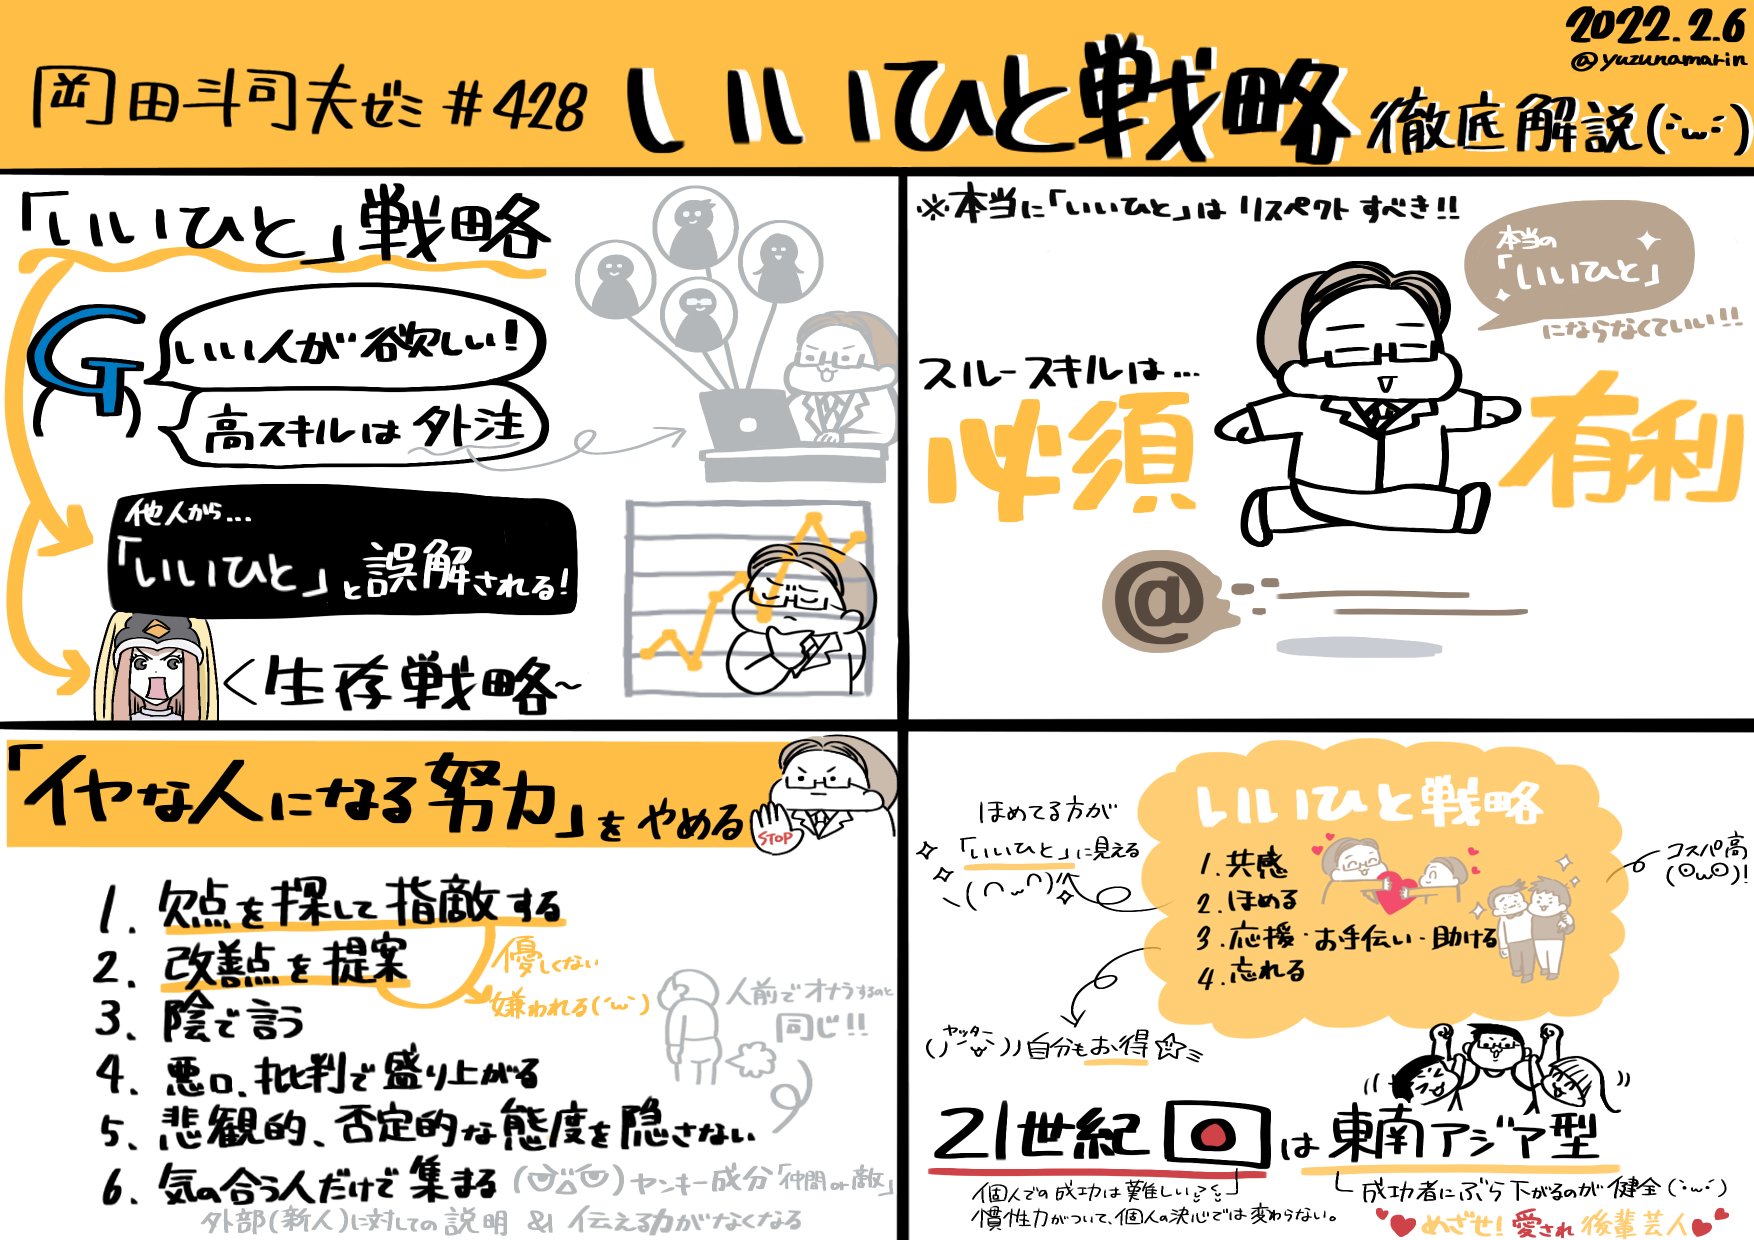 2022.2.6
@yuzunamarin
岡田斗司夫ゼミ#428 いいひと戦略 徹底解説(:・ω・:)
「いいひと」戦略
G
いい人が欲しい!
高スキルは外注
他人から…
「いいひと」と誤解される!
<生存戦略~
※本当に「いいひと」はリスペクトすべき!!
本当の
「いいひと」
にならなくていい!!
スルースキルは…
必須
有利
@
「イヤな人になる努力」をやめる
STOP
1. 欠点を探して指敵する
2. 改善点を提案
優しくない
嫌われる(´ω`)
3. 陰で言う
4. 悪口、批判で盛り上がる
人前でオナラするのと
同じ!!
5. 悲観的、否定的な態度を隠さない
6. 気の合う人だけで集まる
ヤンキー成分「仲間or敵」
外部(新人)に対しての説明&伝える力がなくなる
いいひと戦略
1. 共感
2. ほめる
3. 応援・お手伝い・助ける
4. 忘れる
ほめてる方が
「いいひと」に見える
コスパ高
(⊙ω⊙)!
ヤッター
自分もお得☆
21世紀 は 東南アジア型
個人での成功は難しい
慣性力がついて、個人の決心では変わらない。
成功者にぶら下がるのが健全(:・ω・)
めざせ!愛され後輩芸人